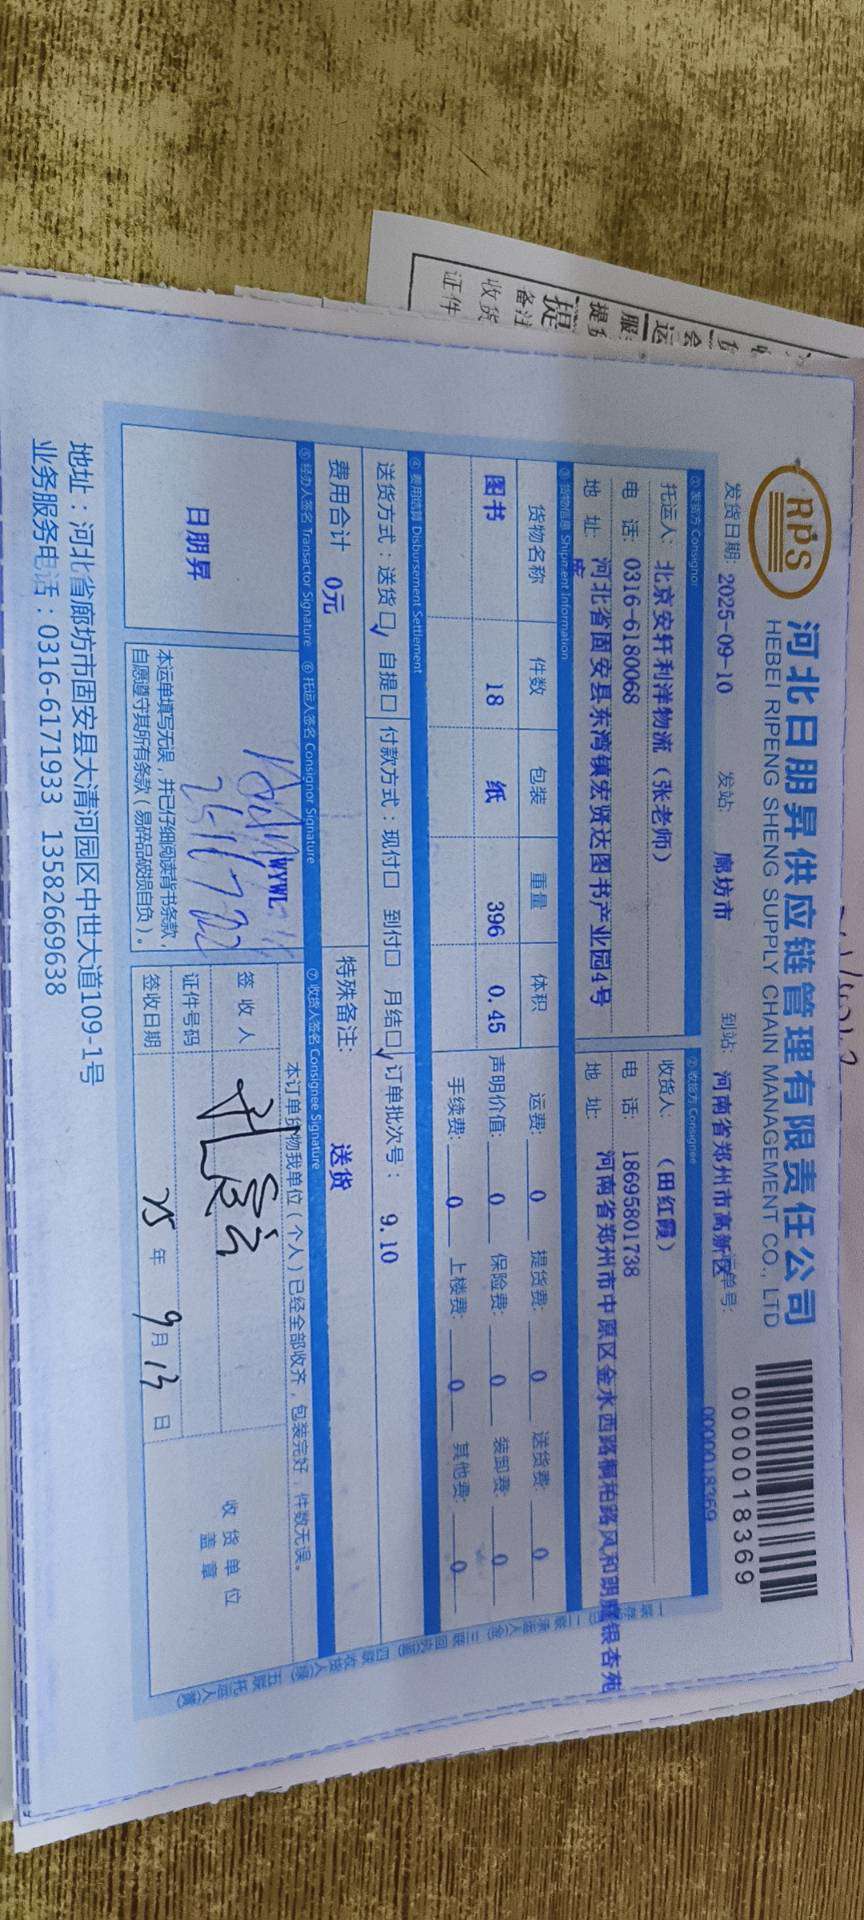 RPS
河北日朋昇供应链管理有限责任公司
HEBEI RIPENG SHENG SUPPLY CHAIN MANAGEMENT CO., LTD
0000018369
发货日期: 2025-09-10 发站: 廊坊市 到站: 河南省郑州市高新区 单号: 0000018369
①发货方 Consignor ②收货方 Consignee
托运人: 北京安轩利洋物流（张老师） 收货人: （田红霞）
电 话: 0316-6180068 电 话: 18695801738
地 址: 河北省固安县东湾镇宏贤达图书产业园4号 地 址: 河南省郑州市中原区金水西路桐柏路风和朗庭银杏苑
库
③货物信息 Shipment Information
货物名称 件数 包装 重量 体积 运费: 0 提货费: 0 送货费: 0
图书 18 纸 396 0.45 声明价值: 0 保险费: 0 装卸费: 0
手续费: 0 上楼费: 0 其他费: 0
④费用结算 Disbursement Settlement
送货方式：送货☑ 自提□ 付款方式：现付□ 到付□ 月结☑ 订单批次号： 9.10
费用合计 0元 特殊备注: 送货
⑤经办人签名 Transactor Signature ⑥托运人签名 Consignor Signature ⑦收货人签名 Consignee Signature
日朋昇
WYWL
本运单填写无误，并已仔细阅读背书条款，
自愿遵守其所有条款（易碎品破损自负）。
本订单货物我单位（个人）已经全部收齐，包装完好，件数无误。
签 收 人
证件号码
签收日期 25 年 9 月 13 日
收 货 单 位
盖 章
地址：河北省廊坊市固安县大清河园区中世大道109-1号
业务服务电话：0316-6171933 13582669638
证件
收货
备注
提